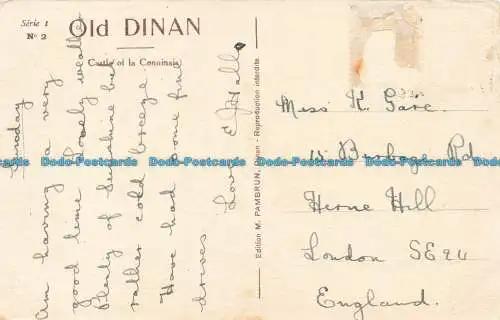 Série 1
Nº 2
Old DINAN
Castle of la Conninais
Am having a very
good time. Lovely weather
Plenty of sunshine but
rather cold breeze.
Have had some fine
drives
Love
E J Hall.
Edition M. PAMBRUN, - Reproduction interdite
Miss K. Gare.
Rd
Herne Hill
London SE24
England.
Dodo-Postcards Dodo-Postcards Dodo-Postcards Dodo-Postcards Dodo-Postcards